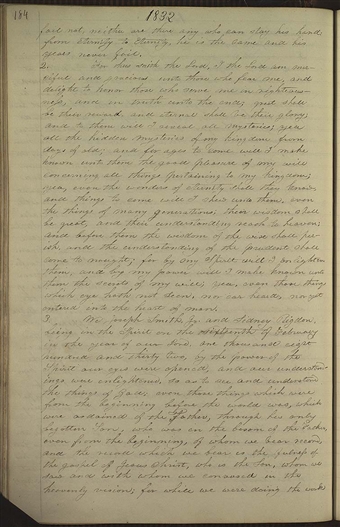 184 1832
fail not, neither are there any who can stay his hand,
from eternity to Eternity, he is the same and his
years never fail.
2. For thus saith the Lord, I the Lord am mer-
ciful and gracious unto those who fear me, and
delight to honor those who serve me in righteous-
ness, and in truth unto the end; great shall
be their reward and eternal shall be their glory;
and to them will I reveal all mysteries; yea
all the hidden mysteries of my kingdom from
days of old; and for ages to come will I make
known unto them the good pleasure of my will
concerning all things pertaining to my kingdom;
yea, even the wonders of eternity shall they know
and things to come will I shew unto them, even
the things of many generations; their wisdom shall
be great, and their understanding reach to heaven;
and before them the wisdom of the wise shall per-
ish, and the understanding of the prudent shall
come to nought; for by my Spirit will I enlighten
them, and by my power will I make known unto
them the secrets of my will; yea, even those things
which eye hath not seen, nor ear heard, nor yet
entered into the heart of man.
3. We, Joseph Smith Jr. and Sidney Rigdon,
being in the Spirit on the sixteenth of February
in the year of our Lord, one thousand eight
hundred and thirty two, by the power of the
Spirit our eyes were opened, and our understand-
ings were enlightened, so as to see and understand
the things of God; even those things which were
from the beginning before the world was, which
were ordained of the Father, through his only
begotten Son, who was in the bosom of the Father,
even from the beginning, of whom we bear record
and the record which we bear is the fulness of
the gospel of Jesus Christ, who is the Son, whom we
saw and with whom we conversed in the
heavenly vision; for while we were doing the work